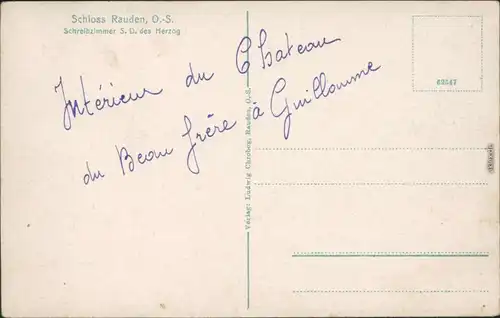 Schloss Rauden, O.-S.
Schreibzimmer S. D. des Herzog
62647
Intérieur du Chateau
du Beau frère à Guillaume
Verlag: Ludwig Chrobog, Rauden, O.-S.